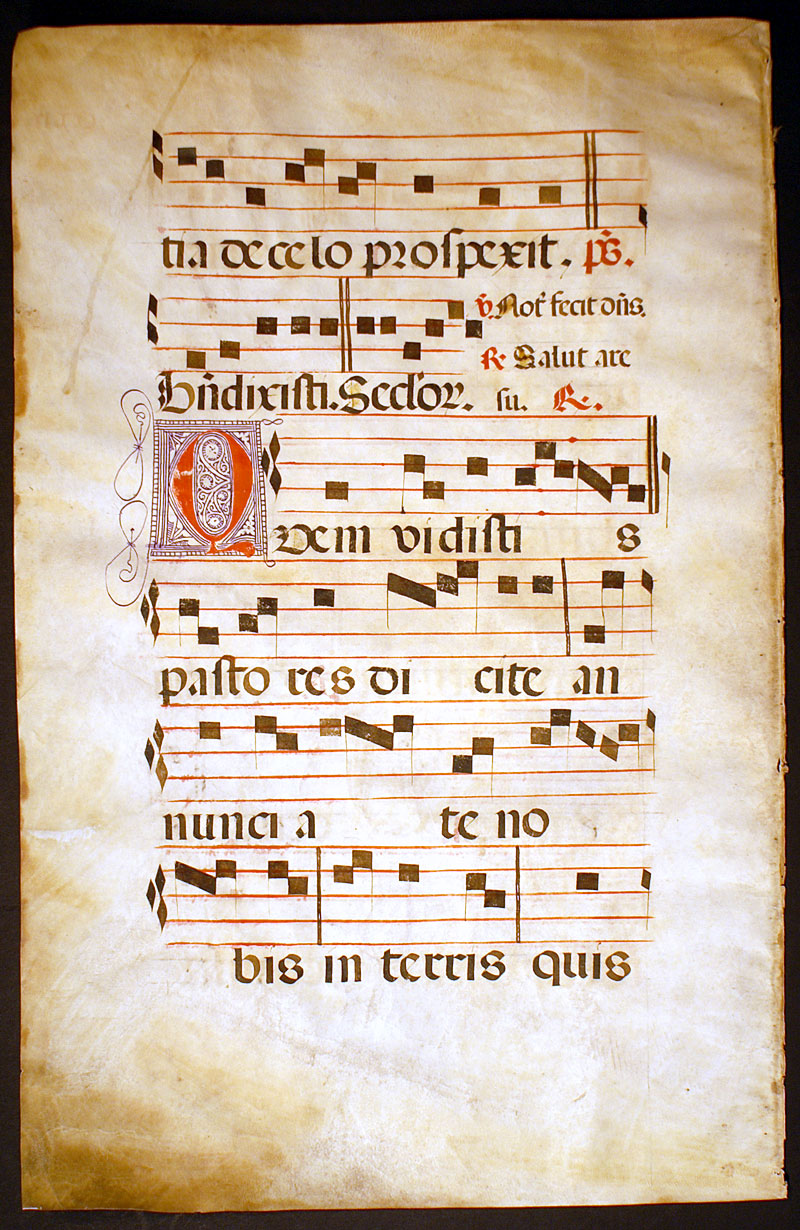 tia de celo prospexit. ps̃.
℣. Not̃ fecit dñs.
℟. Salutare
Bñdixisti. Seclõꝝ. su. ℟.
Quem vidistis
pastores dicite an
nunciate no
bis in terris quis